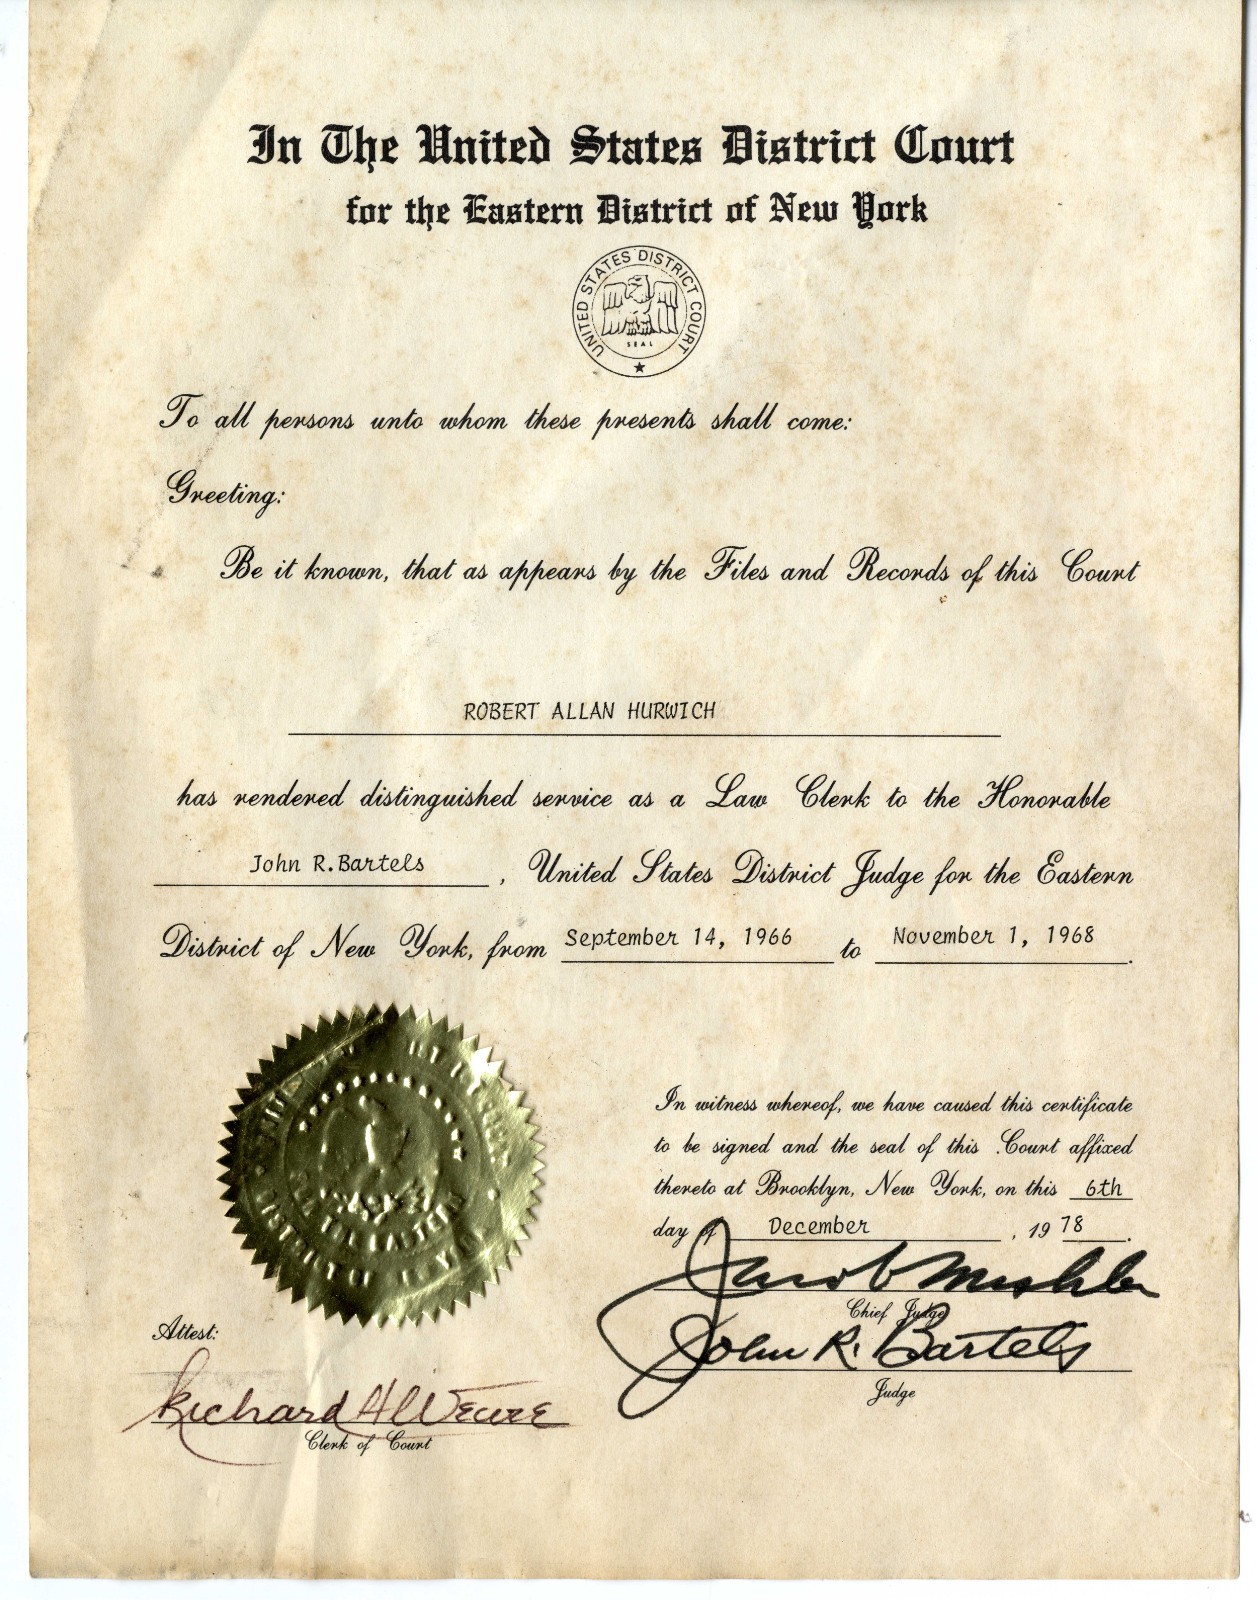 In The United States District Court
for the Eastern District of New York
UNITED STATES DISTRICT COURT
SEAL
To all persons unto whom these presents shall come:
Greeting:
Be it known, that as appears by the Files and Records of this Court
ROBERT ALLAN HURWICH
has rendered distinguished service as a Law Clerk to the Honorable
John R. Bartels, United States District Judge for the Eastern
District of New York, from September 14, 1966 to November 1, 1968.
In witness whereof, we have caused this certificate
to be signed and the seal of this Court affixed
thereto at Brooklyn, New York, on this 6th
day of December, 1978.
Jacob Mishler
Chief Judge
John R. Bartels
Judge
Attest:
Richard H Weare
Clerk of Court